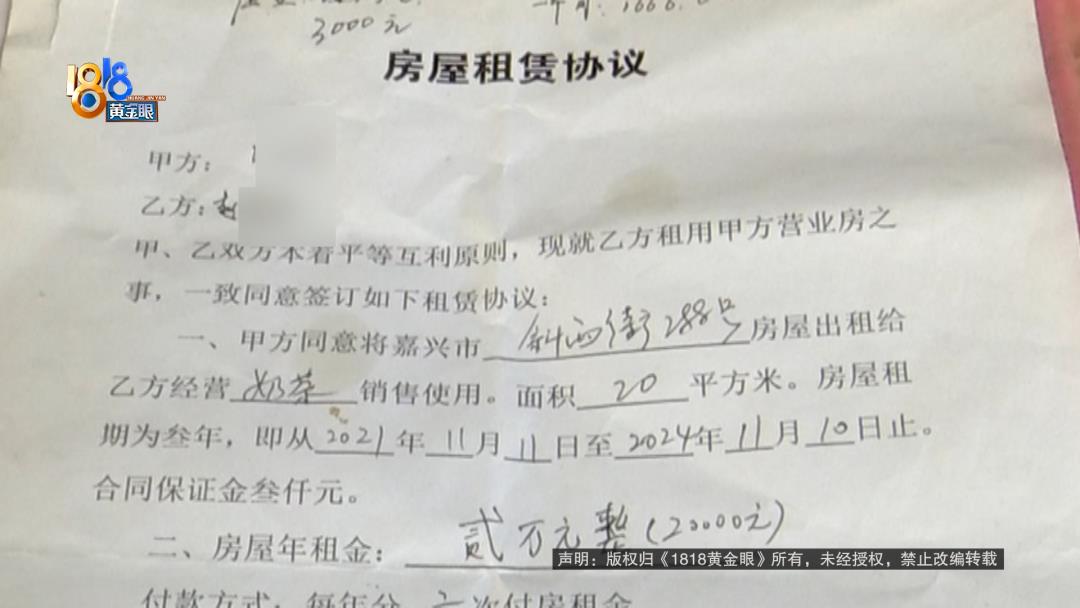 3000元
房屋租赁协议
1818
HUANG JIN YAN
黄金眼
甲方:
乙方:赵
甲、乙双方本着平等互利原则,现就乙方租用甲方营业房之
事,一致同意签订如下租赁协议:
一、甲方同意将嘉兴市斜西街288号房屋出租给
乙方经营奶茶销售使用。面积20平方米。房屋租
期为叁年,即从2021年11月11日至2024年11月10日止。
合同保证金叁仟元。
二、房屋年租金:贰万元整(20000元)
声明:版权归《1818黄金眼》所有,未经授权,禁止改编转载
付款方式:每年分二次付房租金